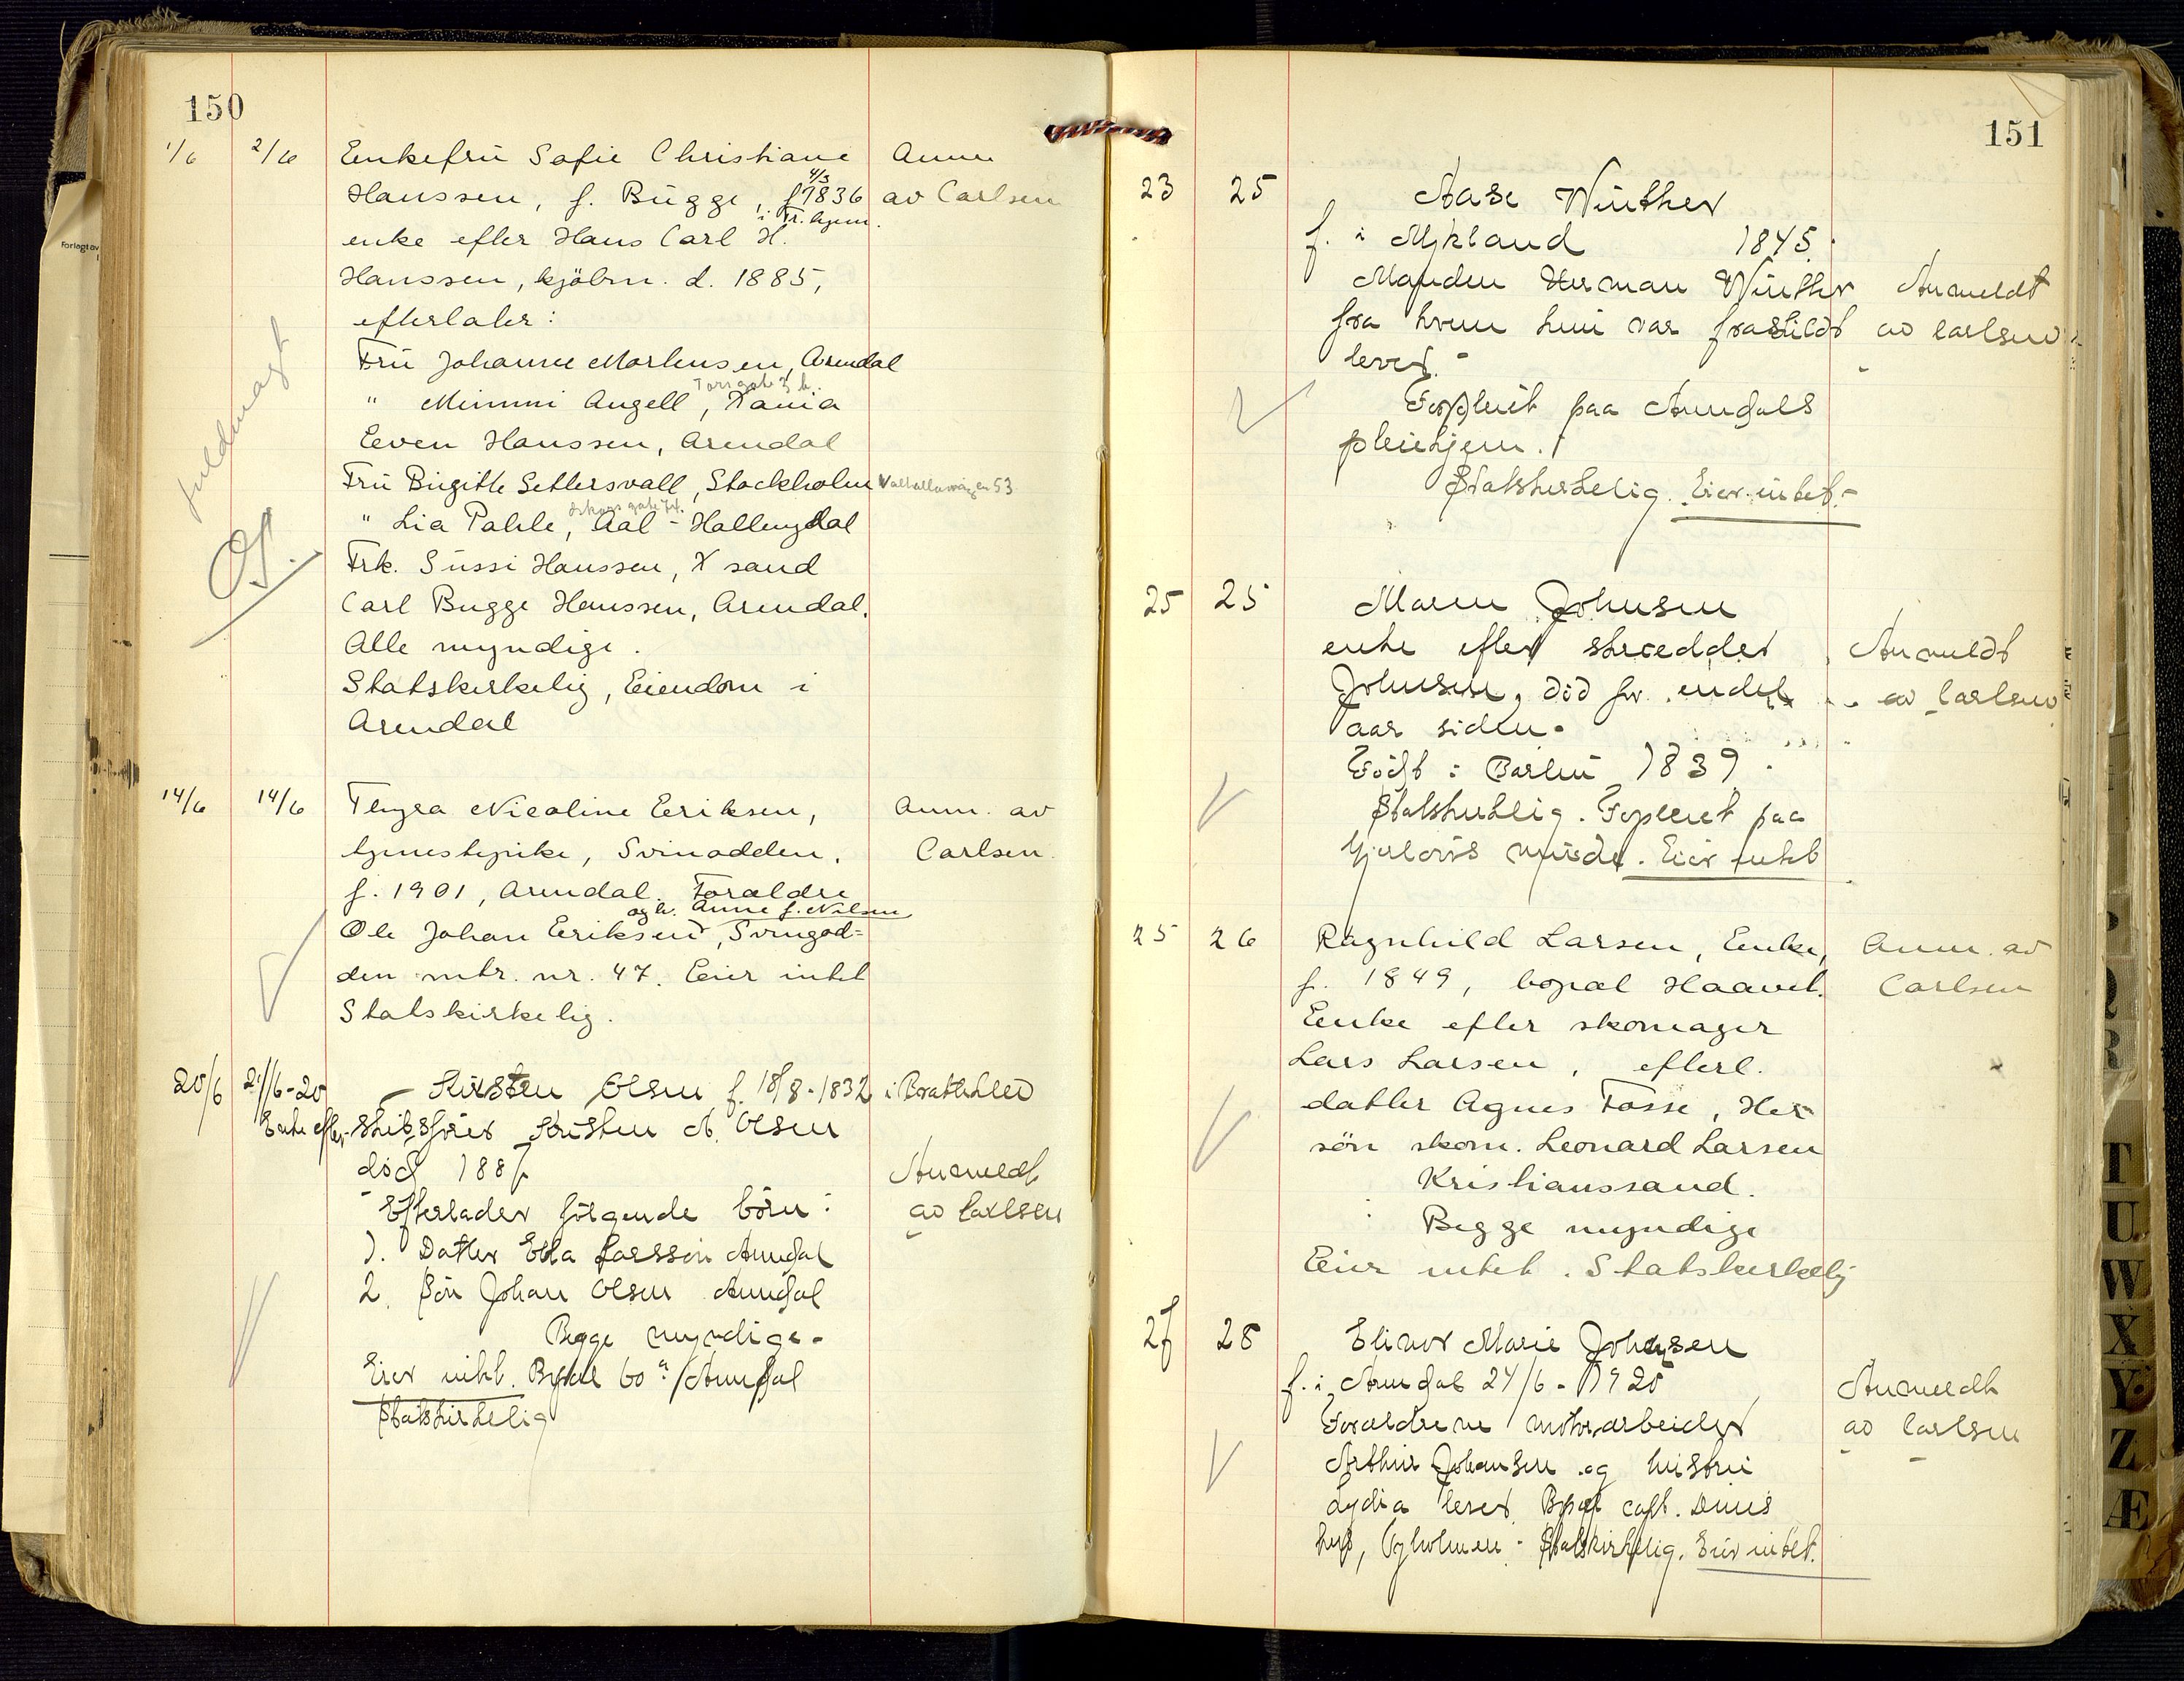 150
1/6 2/6 Enkefru Sofie Christiane Anm.
4/3
Hanssen, f. Bugge, f. 1836 av Carlsen
i Tr. hjem.
enke efter Hans Carl H.
Hanssen, kjöbm. d. 1885,
efterlater:
Fru Johanne Mortensen, Arendal
" Mimmi Angell, Kania
Even Hanssen, Arendal
Fru Birgitte Settersvall, Stockholm Valhallavägen 53
" Lia Pahle, Aal - Hallingdal
Frk. Sussi Hanssen, X sand
Carl Bugge Hanssen, Arendal.
Alle myndige.
Statskirkelig, Eiendom i
Arendal
fuldmagt
14/6 14/6 Thyra Nicoline Eriksen, Anm. av
tjenestepike, Svinodden, Carlsen.
f. 1901, Arendal. Forældre
og h. Anne f. Nilsen
Ole Johan Eriksen, Svinod=
den mtr. nr. 47. Eier intet
Statskirkelig.
20/6 21/6-20 Kirsten Olsen f. 18/8-1832 i Brattekleiv
Enke efter skibsfører Kristen N. Olsen
død 1887 Anmeldt
Efterlader følgende börn: av Carlsen
1. Datter Ella Larsson Arendal
2. Sön Johan Olsen Arendal
Begge myndige.
Eier intet. Bopæl 60 a / Arendal
Statskirkelig
151
23 25 Aase Winther
f. i Mykland 1845.
Manden Herman Winther Anmeldt
fra hvem hun var fraskildt av Carlsen
lever.
Forpleiet paa Arendals
pleiehjem.
Statskirkelig. Eier intet.-
25 25 Maren Johnsen
enke efter skrædder Anmeldt
Johnsen, död for endel av Carlsen
aar siden.
Född i Barbu 1839.
Statskirkelig. Forpleiet paa
minde. Eier intet
25 26 Ragnhild Larsen, Enke, Anm. av
f. 1849, bopæl Haavet. Carlsen
Enke efter skomager
Lars Larsen, efterl.
datter Agnes Fosse, Her
sön skom. Leonard Larsen
Kristianssand.
Begge myndige
Eier intet. Statskirkelig
27 28 Elinor Marie Johansen
f. i Arendal 24/6 - 1920 Anmeldt
Forældrene motorarbeider av Carlsen
Arthur Johansen og hustru
Lydia lever. Bopæl capt.
hus, Tyholmen - Statskirkelig. Eier intet.
Forlagt av
P
Q
R
T
U
W
X
Y
Z
Æ